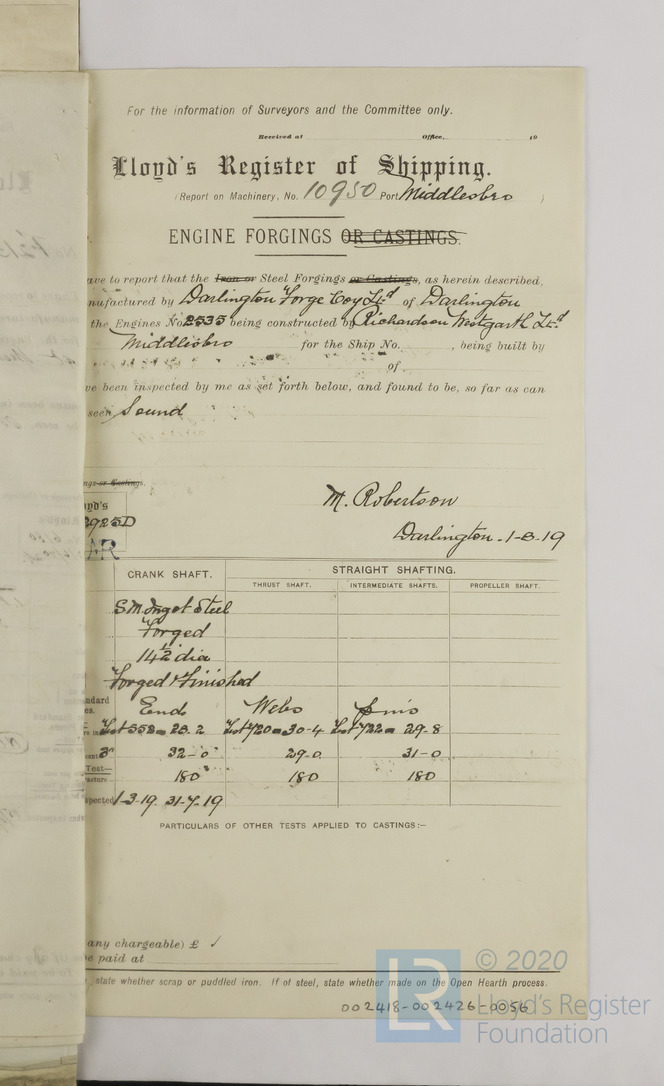 For the information of Surveyors and the Committee only.
Received at Office, 19
Lloyd's Register of Shipping.
(Report on Machinery, No. 10950 Port Middlesbro )
ENGINE FORGINGS OR CASTINGS.
ave to report that the Iron or Steel Forgings or Castings, as herein described,
nufactured by Darlington Forge Coy Ltd of Darlington
the Engines No 2535 being constructed by Richardson Westgarth Ltd
Middlesbro for the Ship No. , being built by
of
ve been inspected by me as set forth below, and found to be, so far as can
seen, Sound
ngs or Castings.
M. Robertson
oyd's
2925D
Darlington. 1-8-19
MR
CRANK SHAFT. STRAIGHT SHAFTING.
THRUST SHAFT. INTERMEDIATE SHAFTS. PROPELLER SHAFT.
S.M. Ingot Steel
Forged
14½ dia
Forged & Finished
ndard
es. Ends Webs Pins
552 - 28.2 720 - 30-4 722 - 29-8
3" 32-0 29-0 31-0
Test—
180° 180 180
pected 1-3-19. 31-7-19
PARTICULARS OF OTHER TESTS APPLIED TO CASTINGS:—
any chargeable) £ ✓
e paid at
, state whether scrap or puddled iron. If of steel, state whether made on the Open Hearth process.
002418-002426-0056
LR
© 2020
Lloyd's Register
Foundation